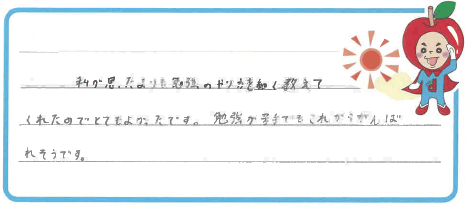 私が思ったよりも勉強のやり方を細く教えて
くれたのでとてもよかったです。勉強が苦手でもこれからがんば
れそうです。
d